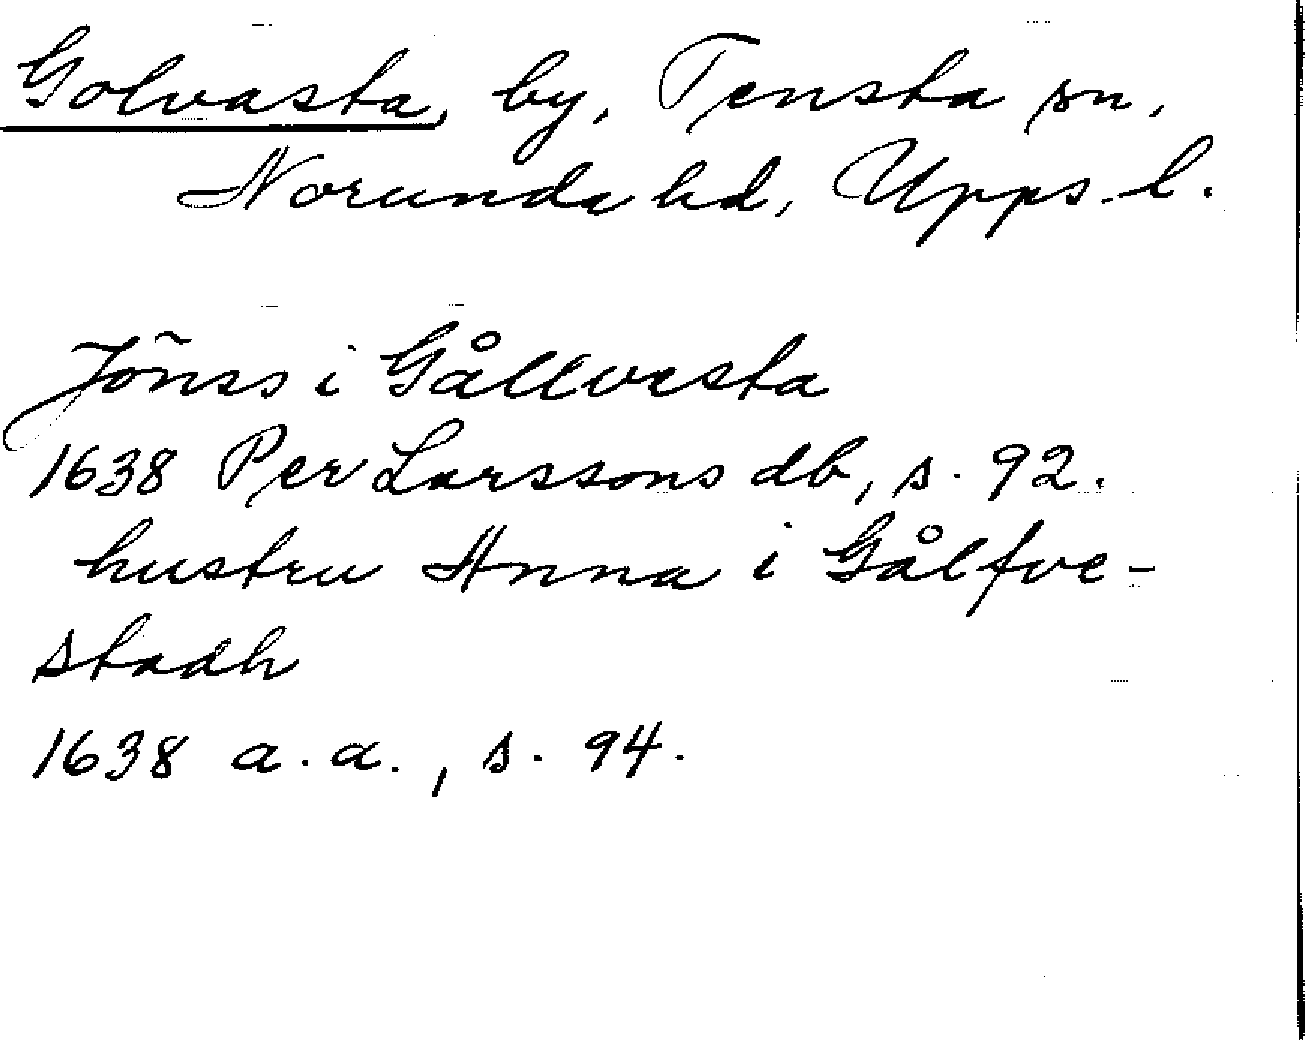 Golvasta, by, Tensta sn,
Norunda hd, Upps. l.
Jönss i Gållvesta
1638 Per Larssons db, s. 92.
hustru Anna i Gålfve-
stadh
1638 a.a., s. 94.